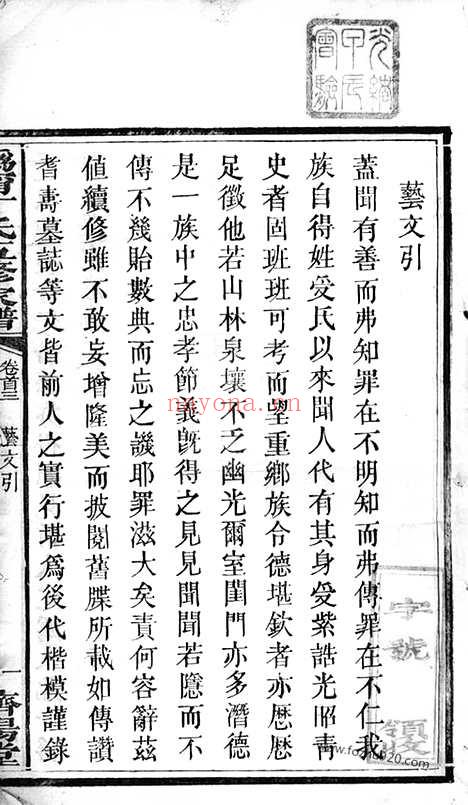 光緒
甲辰
會驗
藝文引
蓋聞有善而弗知罪在不明知而弗傳罪在不仁我
族自得姓受氏以來聞人代有其身受紫誥光昭青
史者固班班可考而望重鄉族令德堪欽者亦歷歷
足徵他若山林泉壤不乏幽光爾室閨門亦多潛德
是一族中之忠孝節義旣得之見見聞聞若隱而不
傳不幾貽數典而忘之譏耶罪滋大矣責何容辭茲
値續修雖不敢妄增隆美而披閱舊牒所載如傳讚
耆壽墓誌等文皆前人之實行堪爲後代楷模謹錄
氏 修家譜
卷首三
藝文引
一
濟陽堂
字號
nayona.cn